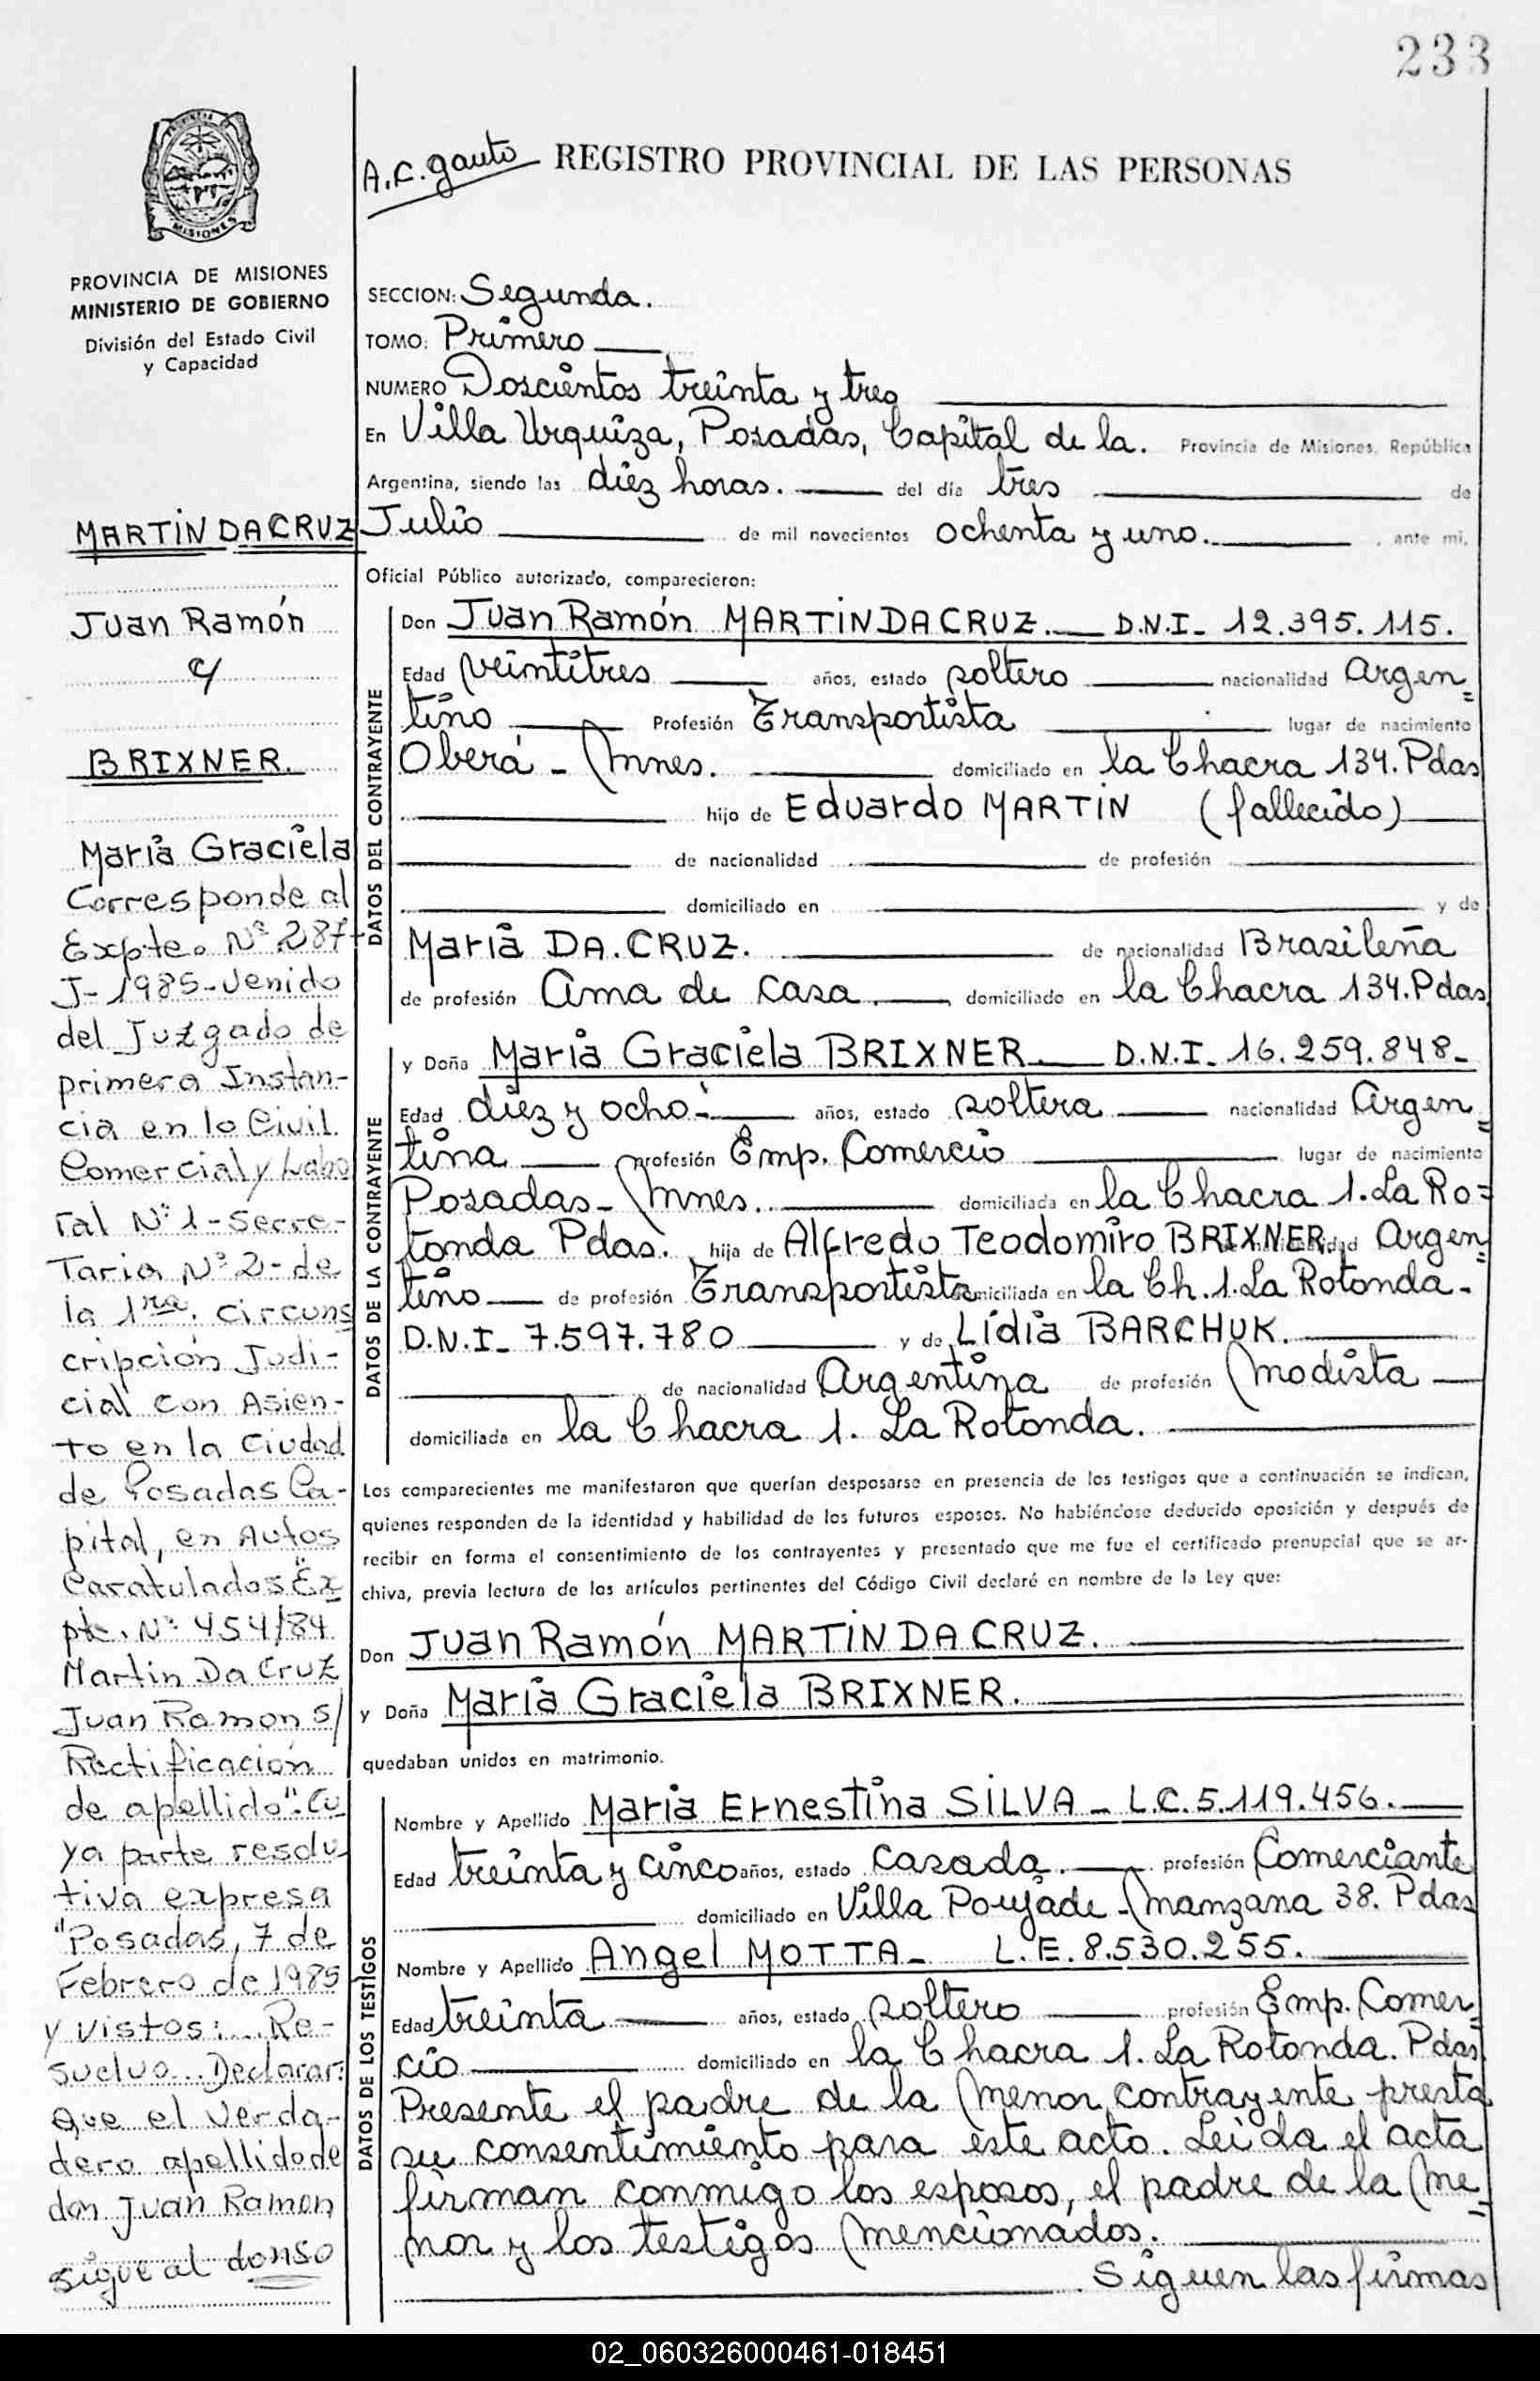 233
MISIONES
PROVINCIA DE MISIONES
MINISTERIO DE GOBIERNO
División del Estado Civil
y Capacidad
MARTIN DA CRUZ
Juan Ramón
y
BRIXNER.
Maria Graciela
Corresponde al
Expte. Nº 287-
J-1985-Venido
del Juzgado de
primera Instan-
cia en lo Civil
Comercial y Labo
ral Nº 1-Secre-
Taria Nº 2-de
la 1ra. circuns
cripción Judi-
cial con Asien-
to en la Ciudad
de Posadas Ca-
pital, en Autos
Caratulados "Ex
pte. Nº 454/84
Martin Da Cruz
Juan Ramon S/
Rectificación
de apellido". Cu
ya parte resolu
tiva expresa
"Posadas, 7 de
Febrero de 1985
y vistos:...Re-
suelvo...Declarar:
Que el verda-
dero apellido de
don Juan Ramon
sigue al dorso
A.C. Gauto
REGISTRO PROVINCIAL DE LAS PERSONAS
SECCION: Segunda.
TOMO: Primero
NUMERO Doscientos treinta y tres
En Villa Urquiza, Posadas, Capital de la. Provincia de Misiones, República
Argentina, siendo las diez horas. del día tres de
Julio de mil novecientos ochenta y uno. , ante mi,
Oficial Público autorizado, comparecieron:
DATOS DEL CONTRAYENTE
Don Juan Ramón MARTIN DA CRUZ. D.N.I- 12.395.115.
Edad veintitres años, estado soltero nacionalidad Argen=
tino Profesión Transportista lugar de nacimiento
Oberá - Mnes. domiciliado en la Chacra 134. Pdas
hijo de Eduardo MARTIN (fallecido)
de nacionalidad de profesión
domiciliado en y de
Maria DA. CRUZ. de nacionalidad Brasileña
de profesión Ama de casa. domiciliado en la Chacra 134. Pdas
DATOS DE LA CONTRAYENTE
y Doña Maria Graciela BRIXNER. D.N.I- 16.259.848-
Edad diez y ocho- años, estado soltera nacionalidad Argen=
tina profesión Emp. Comercio lugar de nacimiento
Posadas- Mnes. domiciliada en la Chacra 1. La Ro=
tonda Pdas. hija de Alfredo Teodomiro BRIXNER. Argen=
tino de profesión Transportista domiciliada en la Ch. 1. La Rotonda-
D.N.I- 7.597.780 y de Lidia BARCHUK.
de nacionalidad Argentina de profesión Modista
domiciliada en la Chacra 1. La Rotonda.
Los comparecientes me manifestaron que querían desposarse en presencia de los testigos que a continuación se indican,
quienes responden de la identidad y habilidad de los futuros esposos. No habiéndose deducido oposición y después de
recibir en forma el consentimiento de los contrayentes y presentado que me fue el certificado prenupcial que se ar-
chiva, previa lectura de los artículos pertinentes del Código Civil declaré en nombre de la Ley que:
Don Juan Ramón MARTIN DA CRUZ.
y Doña Maria Graciela BRIXNER.
quedaban unidos en matrimonio.
DATOS DE LOS TESTIGOS
Nombre y Apellido Maria Ernestina SILVA - L.C. 5.119.456.
Edad treinta y cinco años, estado casada. profesión Comerciante
domiciliado en Villa Poujade - manzana 38. Pdas
Nombre y Apellido Angel MOTTA- L.E. 8.530.255.
Edad treinta años, estado soltero profesión Emp. Comer=
cio domiciliado en la Chacra 1. La Rotonda. Pdas.
Presente el padre de la menor contrayente presta
su consentimiento para este acto. Leida el acta
firman conmigo los esposos, el padre de la me=
nor y los testigos mencionados.
Siguen las firmas
02_060326000461-018451